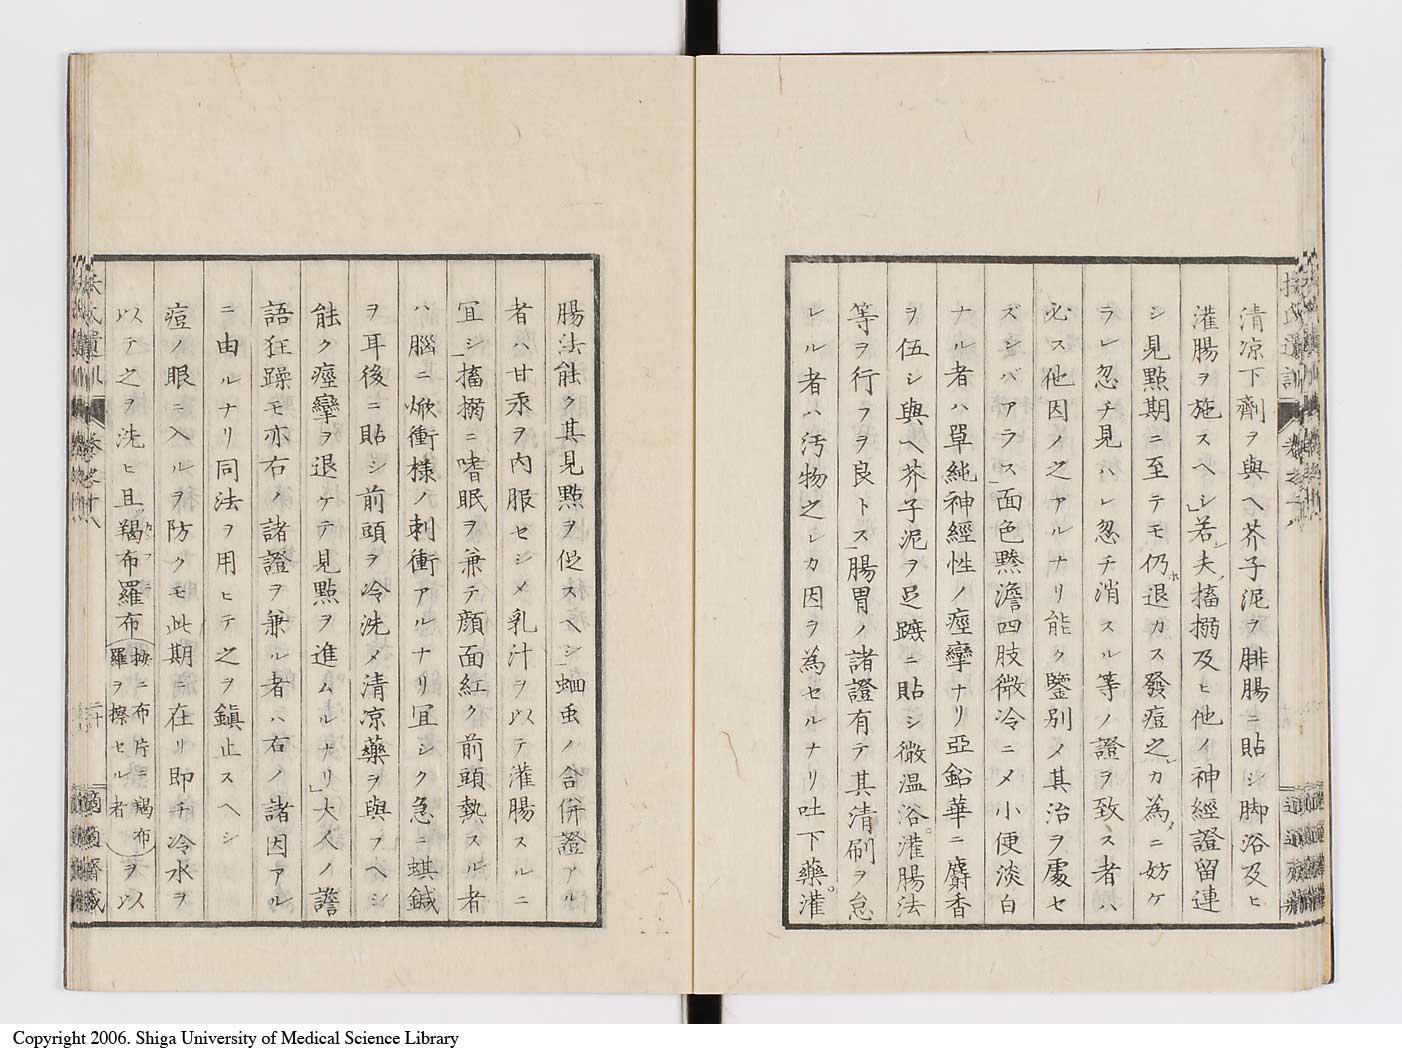 清凉下劑ヲ與ヘ芥子泥ヲ腓腸ニ貼シ脚浴及ヒ
灌腸ヲ施スヘシ」若シ夫搐搦及ヒ他ノ神經證留連
シ見點期ニ至テモ仍ホ退カス發痘之レカ為メニ妨ケ
ラレ忽チ見ハレ忽チ消スル等ノ證ヲ致ス者ハ
必ス他因ノ之アルナリ能ク鑒別メ其治ヲ處セ
ズンバアラス」面色黲澹四肢微冷ニメ小便淡白
ナル者ハ單純神經性ノ痙攣ナリ亞鉛華ニ麝香
ヲ伍シ與ヘ芥子泥ヲ足蹠ニ貼シ微温浴。灌腸法
等ヲ行フヲ良トス」腸胃ノ諸證有テ其清刷ヲ怠
レル者ハ汚物之レカ因ヲ為セルナリ吐下藥。灌
腸法能ク其見點ヲ促スヘシ」蛔虫ノ合併證アル
者ハ甘汞ヲ内服セシメ乳汁ヲ以テ灌腸スルニ
冝シ」搐搦ニ嗜眠ヲ兼テ顔面紅ク前頭熱スル者
ハ腦ニ焮衝様ノ刺衝アルナリ冝シク急ニ蜞鍼
ヲ耳後ニ貼シ前頭ヲ冷洗メ清凉藥ヲ與フヘシ
能ク痙攣ヲ退ケテ見點ヲ進ムルナリ」大人ノ譫
語狂躁モ亦右ノ諸證ヲ兼ル者ハ右ノ諸因アル
ニ由ルナリ同法ヲ用ヒテ之ヲ鎮止スヘシ
痘ノ眼ニ入ルヲ防クモ此期ニ在リ即チ冷水ヲ
以テ之ヲ洗ヒ且羯布羅布（按ニ布片ニ羯布羅ヲ擦セル者）ヲ以
Copyright 2006. Shiga University of Medical Science Library